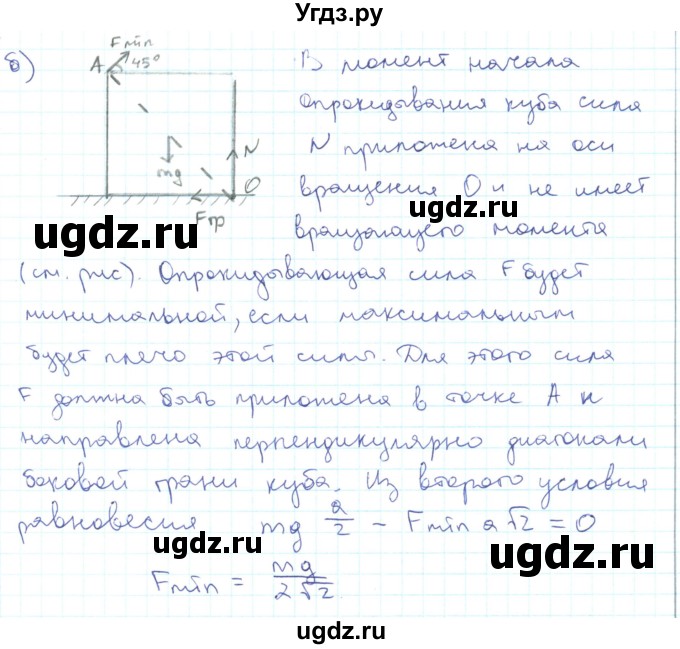 Угдз.ру
б)
Fmin
A
45°
mg
N
O
Fтр
В момент начала
опрокидывания куба сила
N приложена на оси
вращения O и не имеет
ugdz.ru
вращающего момента
ugdz.ru
(см. рис). Опрокидывающая сила F будет
минимальной, если максимальным
будет плечо этой силы. Для этого сила
F должна быть приложена в точке A и
направлена перпендикулярно диагонали
боковой грани куба. Из второго условия
равновесия mg a/2 - Fmin a√2 = 0
ugdz.ru
ugdz.ru
Fmin = mg/2√2.
ugdz.ru
ugdz.ru